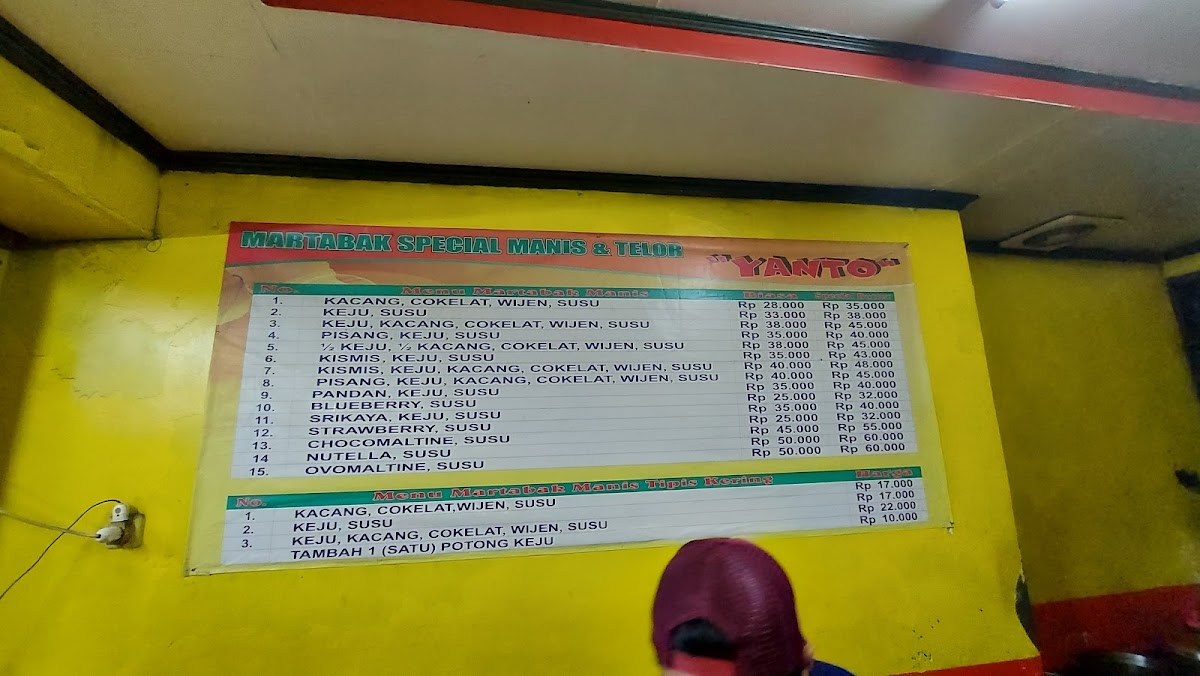 MARTABAK SPECIAL MANIS & TELOR "YANTO"
No. Menu Martabak Manis Biasa Special
1. KACANG, COKELAT, WIJEN, SUSU Rp 28.000 Rp 35.000
2. KEJU, SUSU Rp 33.000 Rp 38.000
3. KEJU, KACANG, COKELAT, WIJEN, SUSU Rp 38.000 Rp 45.000
4. PISANG, KEJU, SUSU Rp 35.000 Rp 40.000
5. ½ KEJU, ½ KACANG, COKELAT, WIJEN, SUSU Rp 38.000 Rp 45.000
6. KISMIS, KEJU, SUSU Rp 35.000 Rp 43.000
7. KISMIS, KEJU, KACANG, COKELAT, WIJEN, SUSU Rp 40.000 Rp 48.000
8. PISANG, KEJU, KACANG, COKELAT, WIJEN, SUSU Rp 40.000 Rp 45.000
9. PANDAN, KEJU, SUSU Rp 35.000 Rp 40.000
10. BLUEBERRY, SUSU Rp 25.000 Rp 32.000
11. SRIKAYA, KEJU, SUSU Rp 35.000 Rp 40.000
12. STRAWBERRY, SUSU Rp 25.000 Rp 32.000
13. CHOCOMALTINE, SUSU Rp 45.000 Rp 55.000
14 NUTELLA, SUSU Rp 50.000 Rp 60.000
15. OVOMALTINE, SUSU Rp 50.000 Rp 60.000
No. Menu Martabak Manis Tipis Kering Harga
1. KACANG, COKELAT,WIJEN, SUSU Rp 17.000
2. KEJU, SUSU Rp 17.000
3. KEJU, KACANG, COKELAT, WIJEN, SUSU Rp 22.000
TAMBAH 1 (SATU) POTONG KEJU Rp 10.000